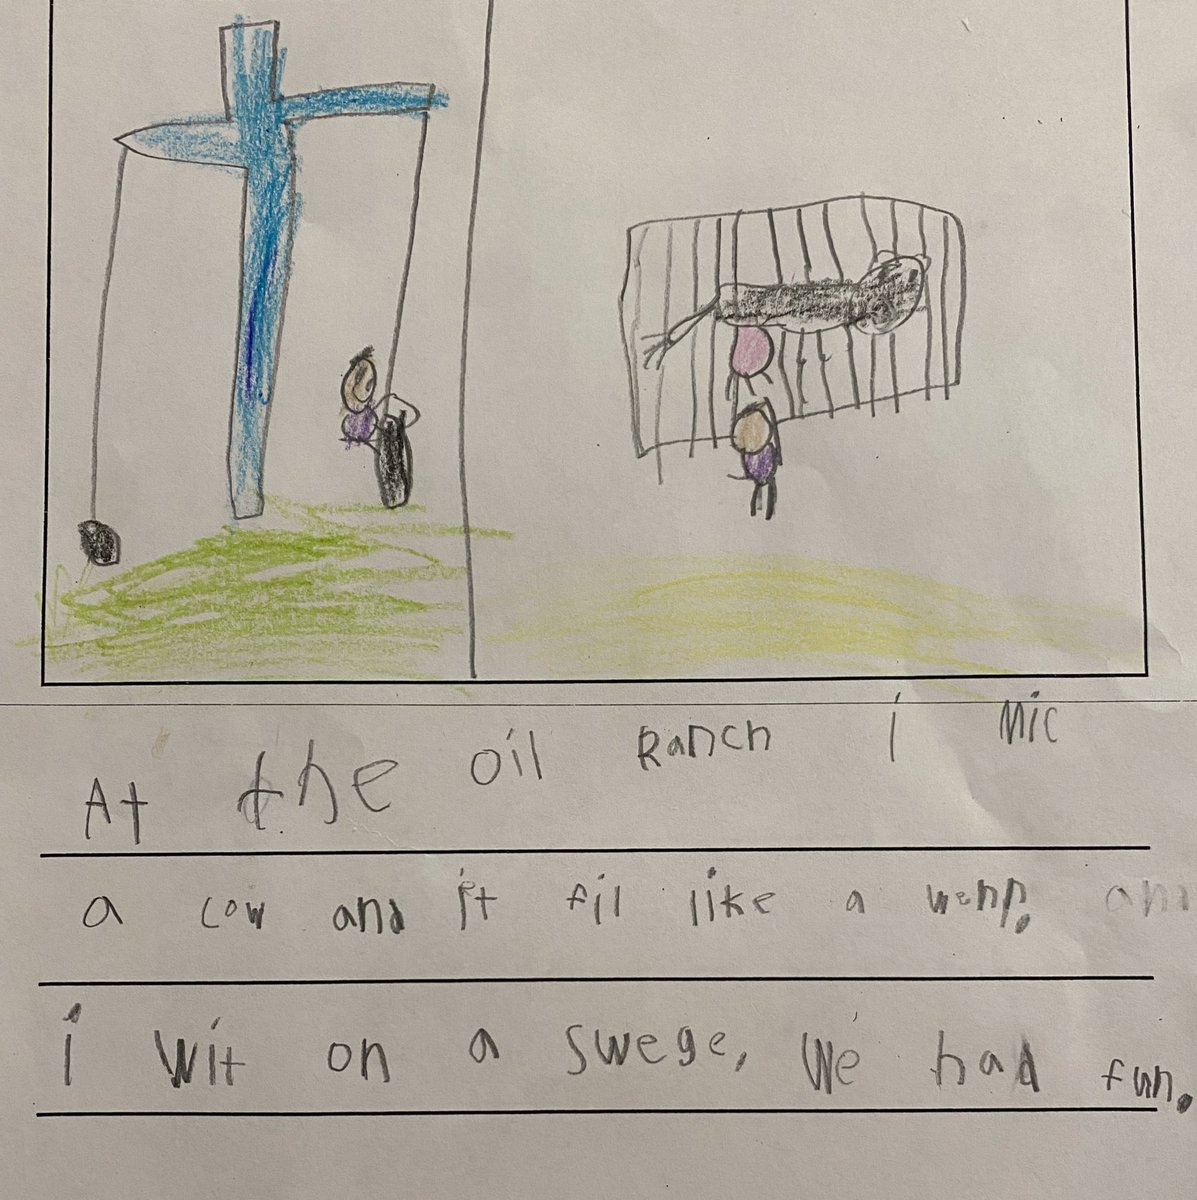 At the oil Ranch i Mic
a cow and it fil like a wenp. and
i wit on a swege, We had fun.